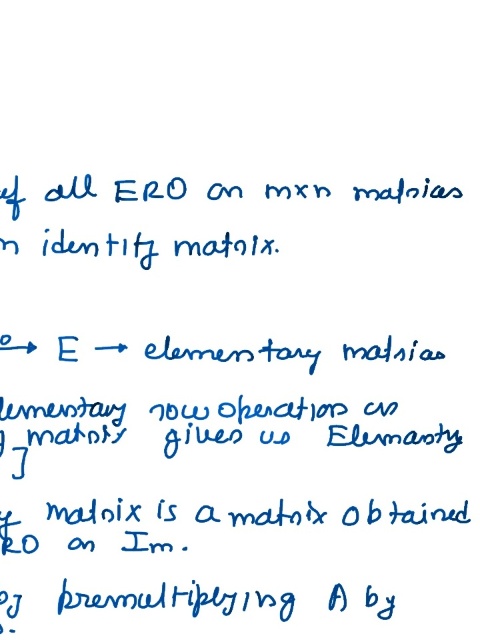 of all ERO on mxn matrias
n identity matrix.
→ E → elementary matrias
lementary row operation on
matrix gives us Elemanty
]
matrix is a matrix obtained
RO on Im.
premultiplying A by